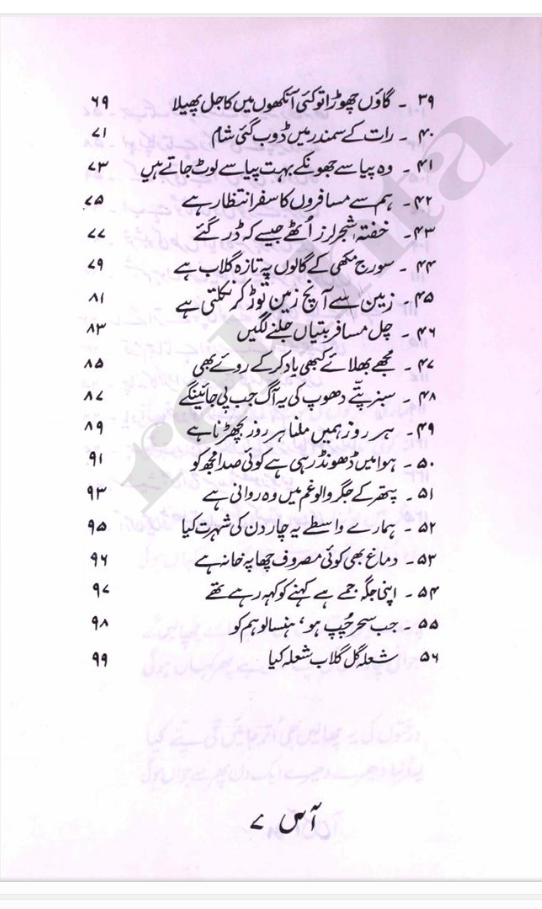 ۳۹ ۔ گاؤں چھوڑا تو کئی آنکھوں میں کاجل پھیلا ۶۹
۴۰ ۔ رات کے سمندر میں ڈوب گئی شام ۷۱
۴۱ ۔ وہ پیاسے جھونکے بہت پیاسے لوٹ جاتے ہیں ۷۳
۴۲ ۔ ہم سے مسافروں کا سفر انتظار ہے ۷۵
۴۳ ۔ خفتہ شجر لرز اُٹھے جیسے کہ ڈر گئے ۷۷
۴۴ ۔ سورج مکھی کے گالوں پہ تازہ گلاب ہے ۷۹
۴۵ ۔ زمین سے آنچ زمین توڑ کر نکلتی ہے ۸۱
۴۶ ۔ چل مسافر بتیاں جلنے لگیں ۸۳
۴۷ ۔ مجھے بھلائے کبھی یاد کر کے روئے بھی ۸۵
۴۸ ۔ سبز پتّے دھوپ کی یہ آگ جب پی جائینگے ۸۷
۴۹ ۔ ہر روز ہمیں ملنا ہر روز بچھڑنا ہے ۸۹
۵۰ ۔ ہوا میں ڈھونڈ رہی ہے کوئی صدا مجھ کو ۹۱
۵۱ ۔ پتھر کے جگر والو غم میں وہ روانی ہے ۹۳
۵۲ ۔ ہمارے واسطے یہ چار دن کی شہرت کیا ۹۵
۵۳ ۔ دماغ بھی کوئی مصروف چھاپہ خانہ ہے ۹۶
۵۴ ۔ اپنی جگہ جمے ہے کہنے کو کہہ رہے تھے ۹۷
۵۵ ۔ جب سحر چُپ ہو، ہنسا لو ہم کو ۹۸
۵۶ ۔ شعلہ گل گلاب شعلہ کیا ۹۹
آس ۷